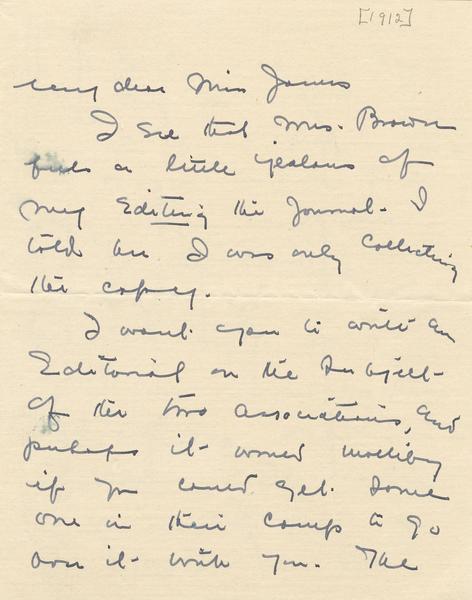 [1912]
My dear Miss Janes
I see that Mrs. Brown
feels a little jealous of
my Editing the Journal. I
told her I was only Collecting
the copy.
I want you to write an
Editorial on the subject
of the two associations, and
perhaps it would mollify
if you could get some
one in their camp to go
over it with you. The